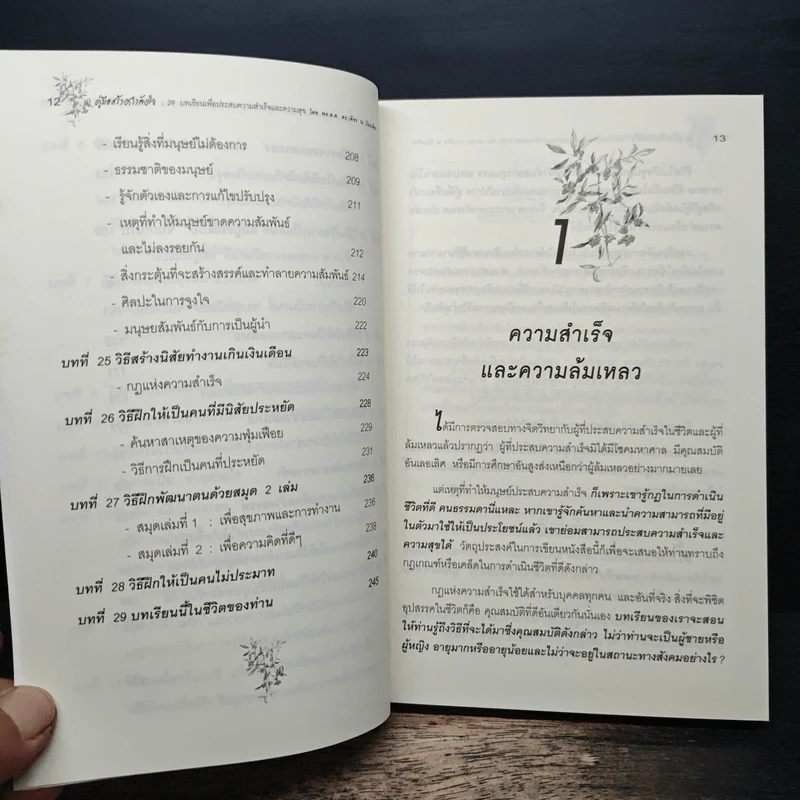 12 คู่มือสร้างกำลังใจ : 29 บทเรียนเพื่อประสบความสำเร็จและความสุข โดย พล.ต.ต.
- เรียนรู้สิ่งที่มนุษย์ไม่ต้องการ 208
- ธรรมชาติของมนุษย์ 209
- รู้จักตัวเองและการแก้ไขปรับปรุง 211
- เหตุที่ทำให้มนุษย์ขาดความสัมพันธ์
และไม่ลงรอยกัน 212
- สิ่งกระตุ้นที่จะสร้างสรรค์และทำลายความสัมพันธ์ 214
- ศิลปะในการจูงใจ 220
- มนุษยสัมพันธ์กับการเป็นผู้นำ 222
บทที่ 25 วิธีสร้างนิสัยทำงานเกินเงินเดือน 223
- กฎแห่งความสำเร็จ 224
บทที่ 26 วิธีฝึกให้เป็นคนที่มีนิสัยประหยัด 228
- ค้นหาสาเหตุของความฟุ่มเฟือย 229
- วิธีการฝึกเป็นคนที่ประหยัด 231
บทที่ 27 วิธีฝึกพัฒนาตนด้วยสมุด 2 เล่ม 236
- สมุดเล่มที่ 1 : เพื่อสุขภาพและการทำงาน 236
- สมุดเล่มที่ 2 : เพื่อความคิดที่ดีๆ 238
บทที่ 28 วิธีฝึกให้เป็นคนไม่ประมาท 240
บทที่ 29 บทเรียนนี้ในชีวิตของท่าน 245
13
1
ความสำเร็จ
และความล้มเหลว
ได้มีการตรวจสอบทางจิตวิทยากับผู้ที่ประสบความสำเร็จในชีวิตและผู้ที่
ล้มเหลวแล้วปรากฏว่า ผู้ที่ประสบความสำเร็จมิได้มีโชคมหาศาล มีคุณสมบัติ
อันเลอเลิศ หรือมีการศึกษาอันสูงส่งเหนือกว่าผู้ล้มเหลวอย่างมากมายเลย
แต่เหตุที่ทำให้มนุษย์ประสบความสำเร็จ ก็เพราะเขารู้กฎในการดำเนิน
ชีวิตที่ดี คนธรรมดานี่แหละ หากเขารู้จักค้นหาและนำความสามารถที่มีอยู่
ในตัวมาใช้ให้เป็นประโยชน์แล้ว เขาย่อมสามารถประสบความสำเร็จและ
ความสุขได้ วัตถุประสงค์ในการเขียนหนังสือนี้ก็เพื่อจะเสนอให้ท่านทราบถึง
กฎเกณฑ์หรือเคล็ดในการดำเนินชีวิตที่ดีดังกล่าว
กฎแห่งความสำเร็จใช้ได้สำหรับบุคคลทุกคน และอันที่จริง สิ่งที่จะพิชิต
อุปสรรคในชีวิตก็คือ คุณสมบัติที่ดีอันเดียวกันนั่นเอง บทเรียนของเราจะสอน
ให้ท่านรู้ถึงวิธีที่จะได้มาซึ่งคุณสมบัติดังกล่าว ไม่ว่าท่านจะเป็นผู้ชายหรือ
ผู้หญิง อายุมากหรืออายุน้อยและไม่ว่าจะอยู่ในสถานะทางสังคมอย่างไร ?